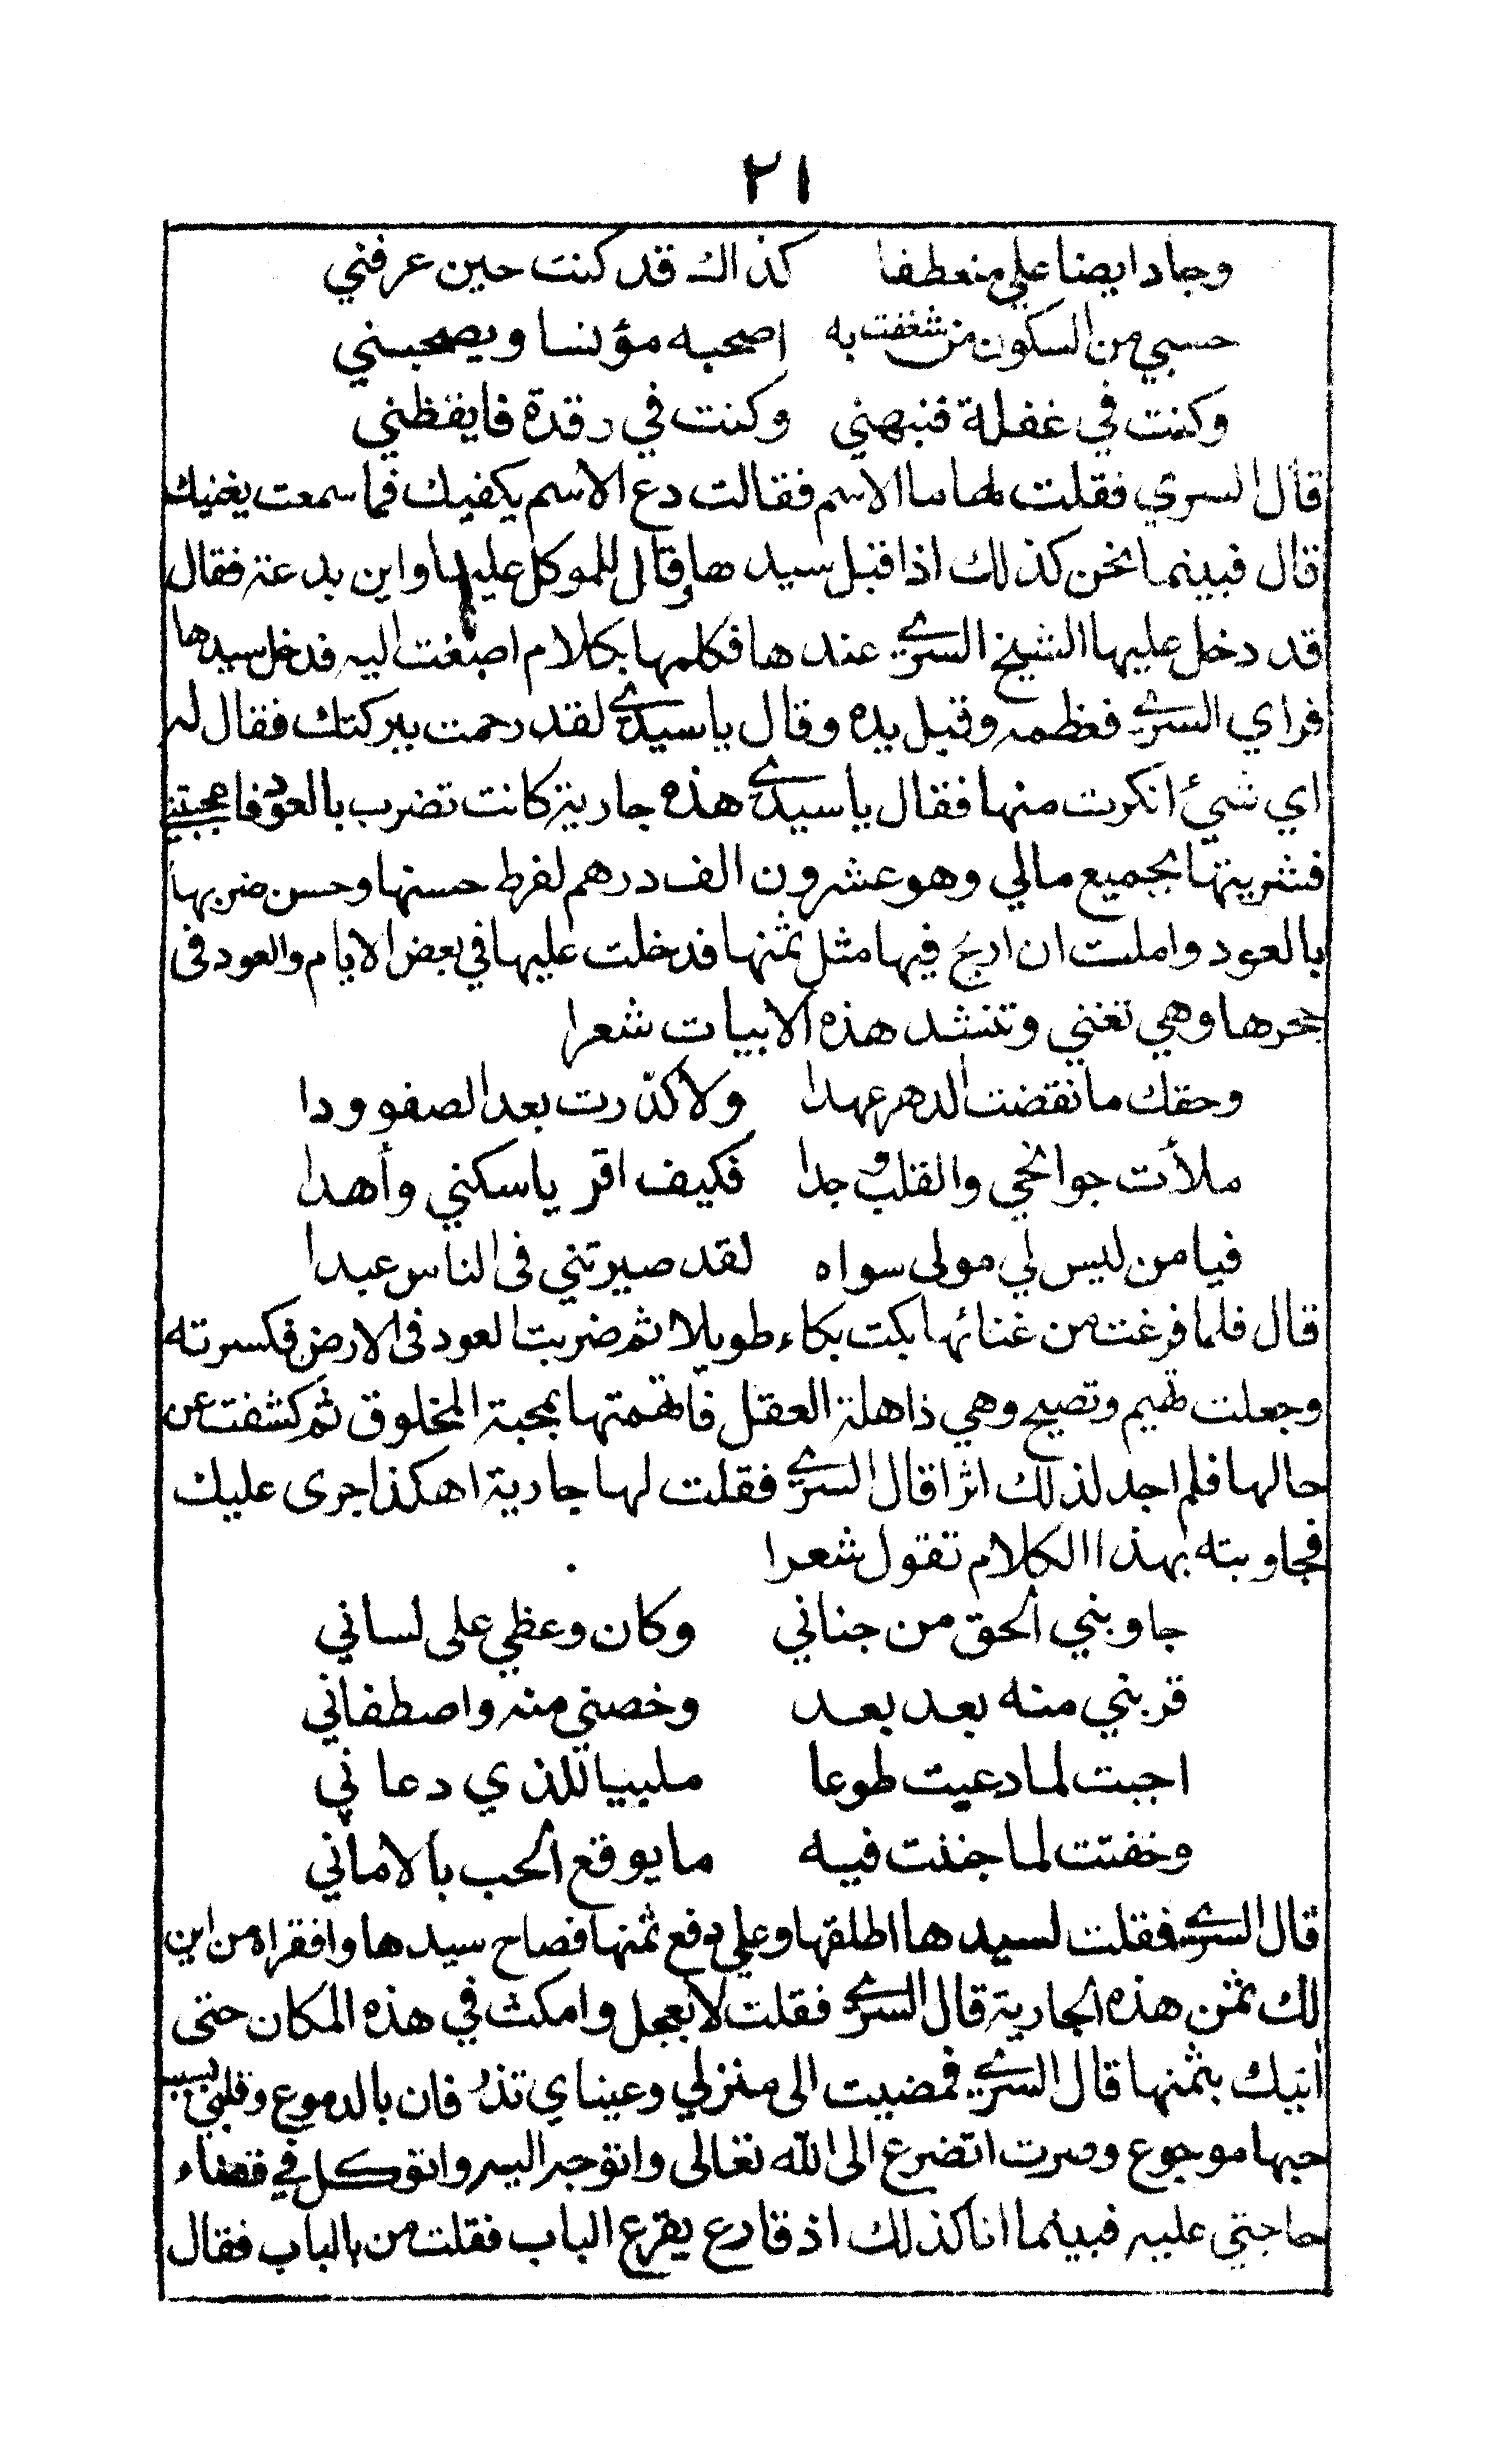 ٢١
وجاد ايضا علي منعطفا كذاك قد كنت حين عرفني
حسبي من السكون من شغفت به اصحبه مؤنسا ويصحبني
وكنت في غفلة فنبهني وكنت في رقدة فايقظني
قال السري فقلت لها ما الاسم فقالت دع الاسم يكفيك فما سمعت يغنيك
قال فبينما نحن كذلك اذا قبل سيدها وقال للموكل عليها واين بدعة فقال
قد دخل عليها الشيخ السري عندها فكلمها بكلام اصغت اليه فدخل سيدها
فراي السري فعظمه وقبل يده وقال يا سيدي لقد رحمت ببركتك فقال له
اي شيئ انكرت منها فقال يا سيدي هذه جارية كانت تضرب بالعود فاعجبتني
فشريتها بجميع مالي وهو عشرون الف درهم لفرط حسنها وحسن ضربها
بالعود واملت ان اربح فيها مثل ثمنها فدخلت عليها في بعض الايام والعود فى
حجرها وهي تغنى وتنشد هذه الابيات شعرا
وحقك ما نقضت الدهر عهدا ولا كدّرت بعد الصفو ودا
ملأت جوانحي والقلب وجدا فكيف اقر ياسكني وأهدا
فيا من ليس لي مولى سواه لقد صيرتني فى الناس عبدا
قال فلما فرغت من غنائها بكت بكاء طويلا ثم ضربت العود فى الارض فكسرته
وجعلت تهيم وتصيح وهي ذاهلة العقل فاتهمتها بمحبة المخلوق ثم كشفت عن
حالها فلم اجد لذلك اثرا قال السري فقلت لها جارية اهكذا جرى عليك
فجاوبته بهذا االكلام تقول شعرا
جاوبني الحق من جناني وكان وعظي على لساني
قربني منه بعد بعد وخصني منه واصطفاني
اجبت لما دعيت طوعا ملبيا للذي دعاني
وخفتت لما جننت فيه ما يوقع الحب بالاماني
قال السري فقلت لسيدها اطلقها وعلي دفع ثمنها فصاح سيدها وافقراه من اين
لك ثمن هذه الجارية قال السري فقلت لا تعجل وامكث في هذه المكان حتى
أتيك بثمنها قال السري فمضيت الى منزلي وعيناي تذرفان بالدموع وقلبي بسبب
حبها موجوع وصرت اتضرع الى الله تعالى واتوجه اليه واتوكل في قضاء
حاجتي عليه فبينما انا كذلك اذ قارع يقرع الباب فقلت من بالباب فقال